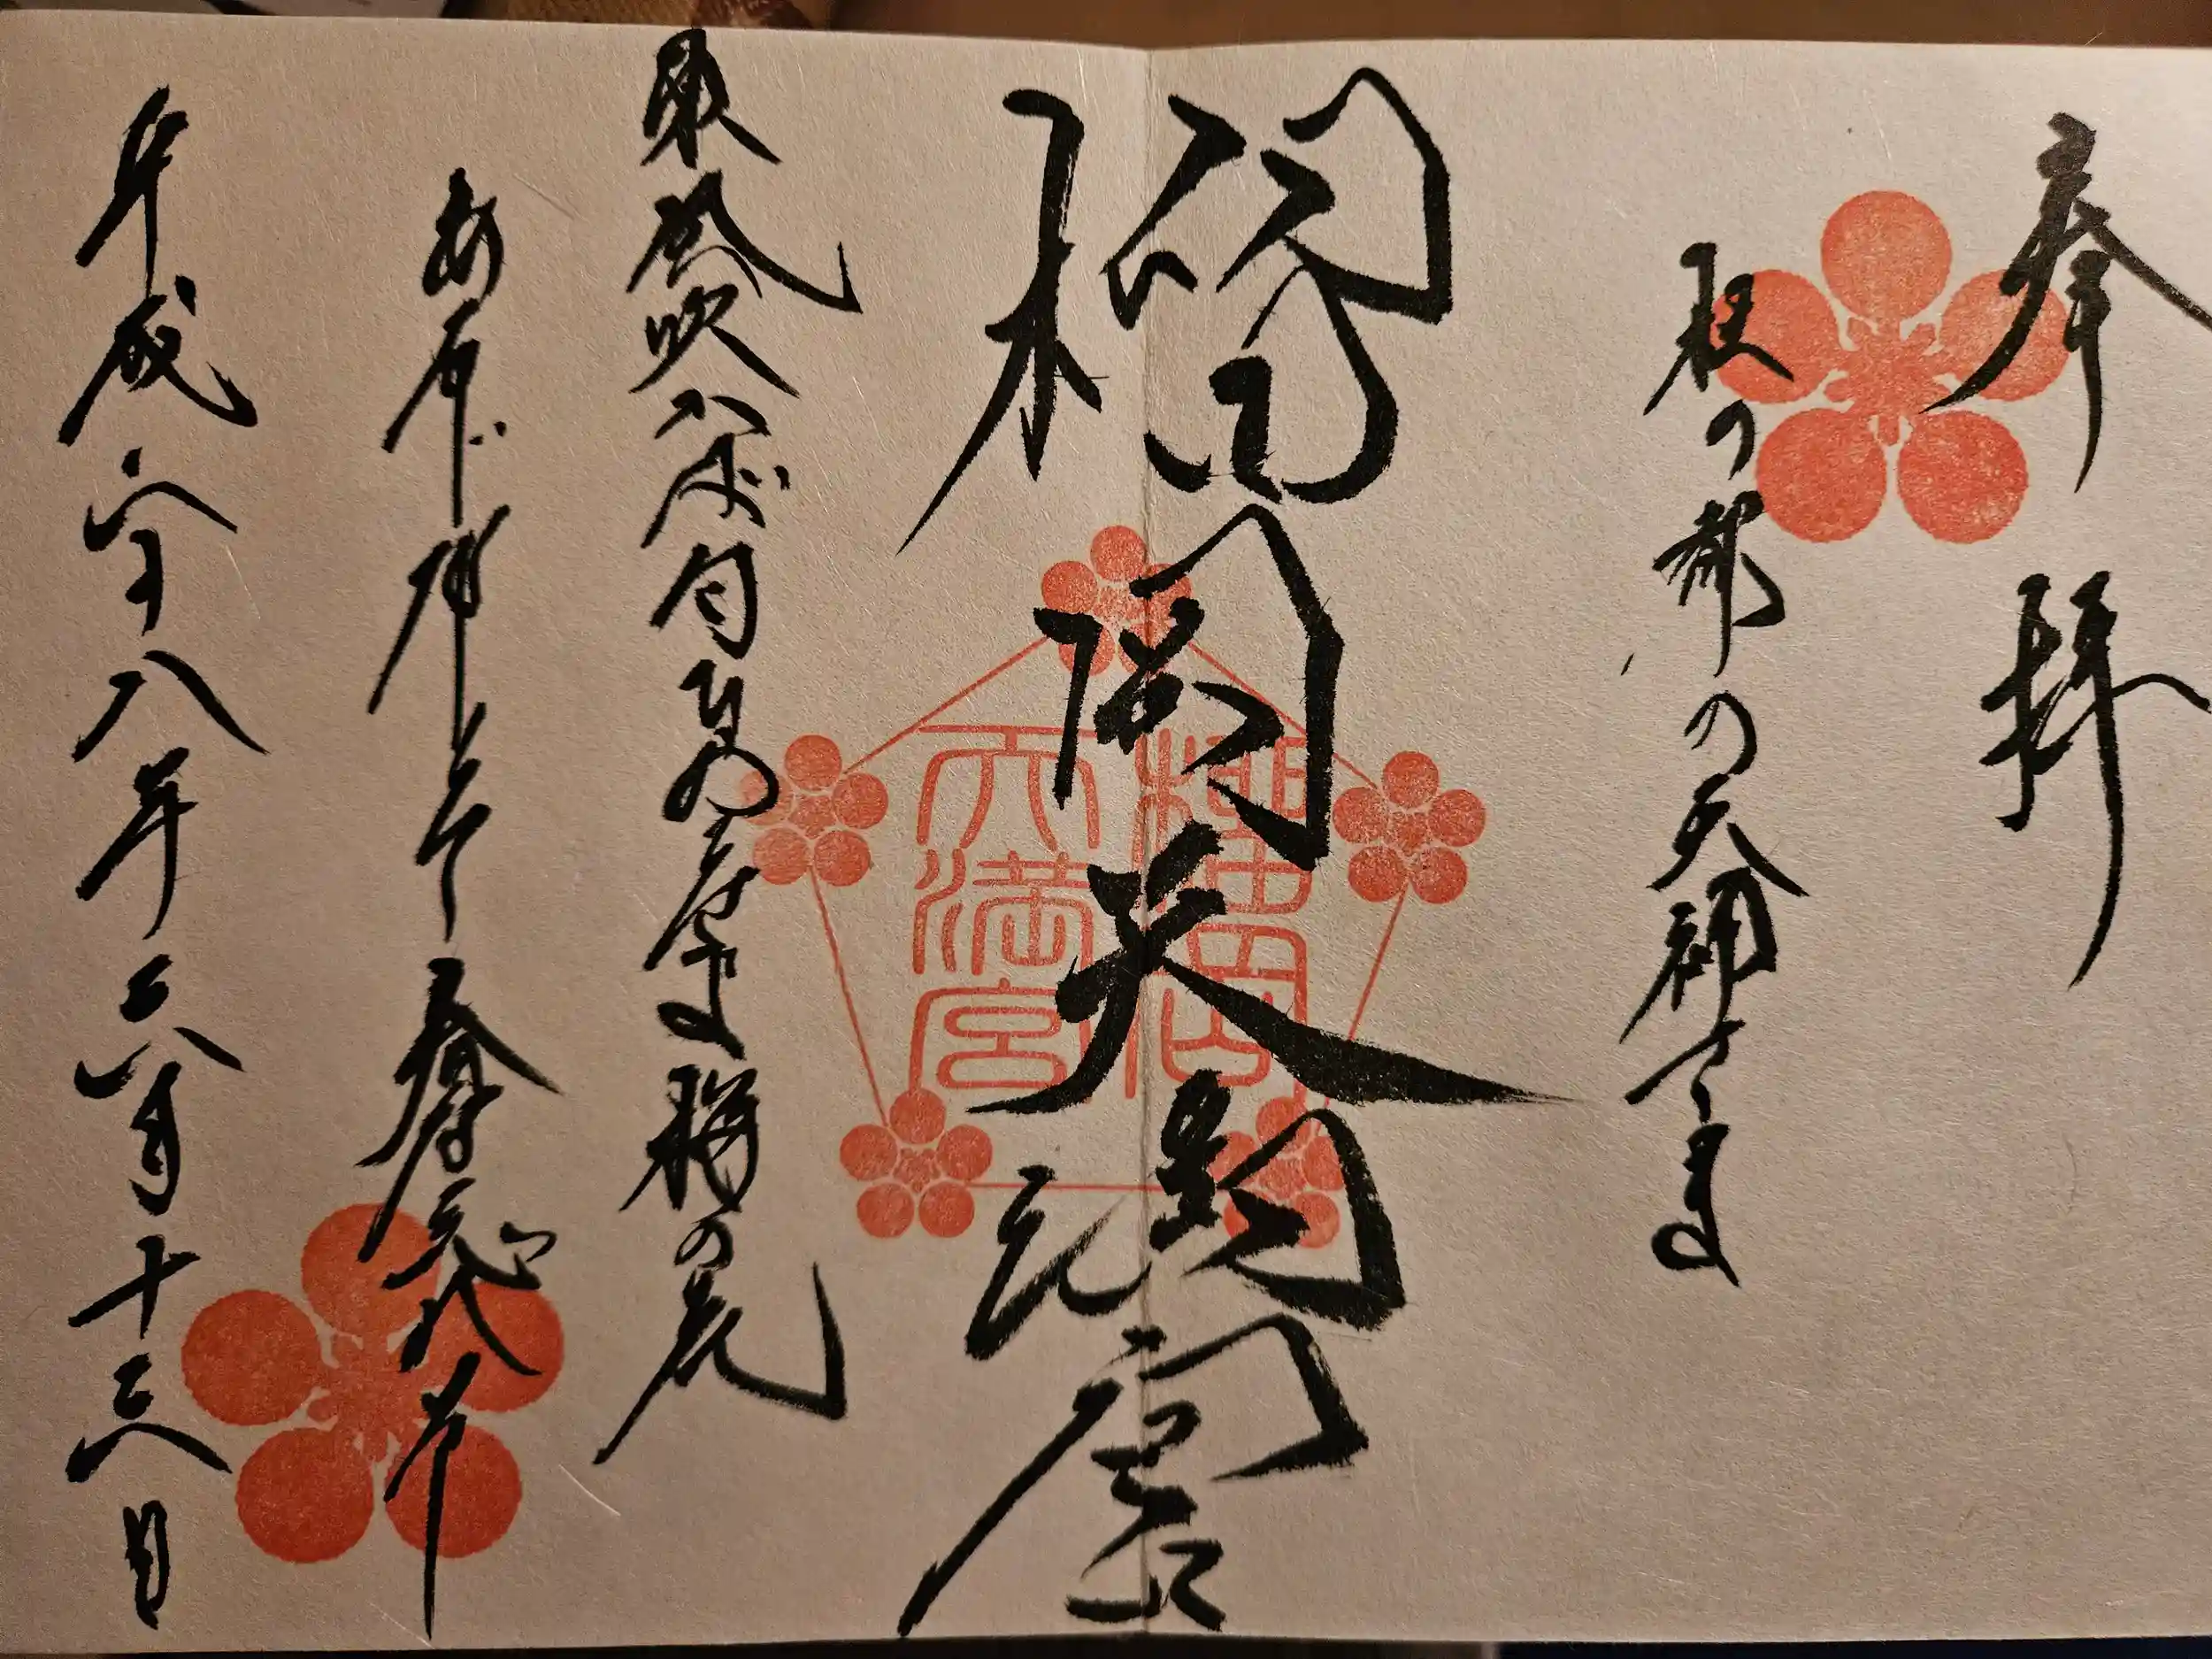 奉拝
杜の都の天神さま
榴岡天満宮
榴岡
天満宮
東風吹かば匂ひおこせよ梅の花
あるじなしとて春
平成二十八年二月十三日